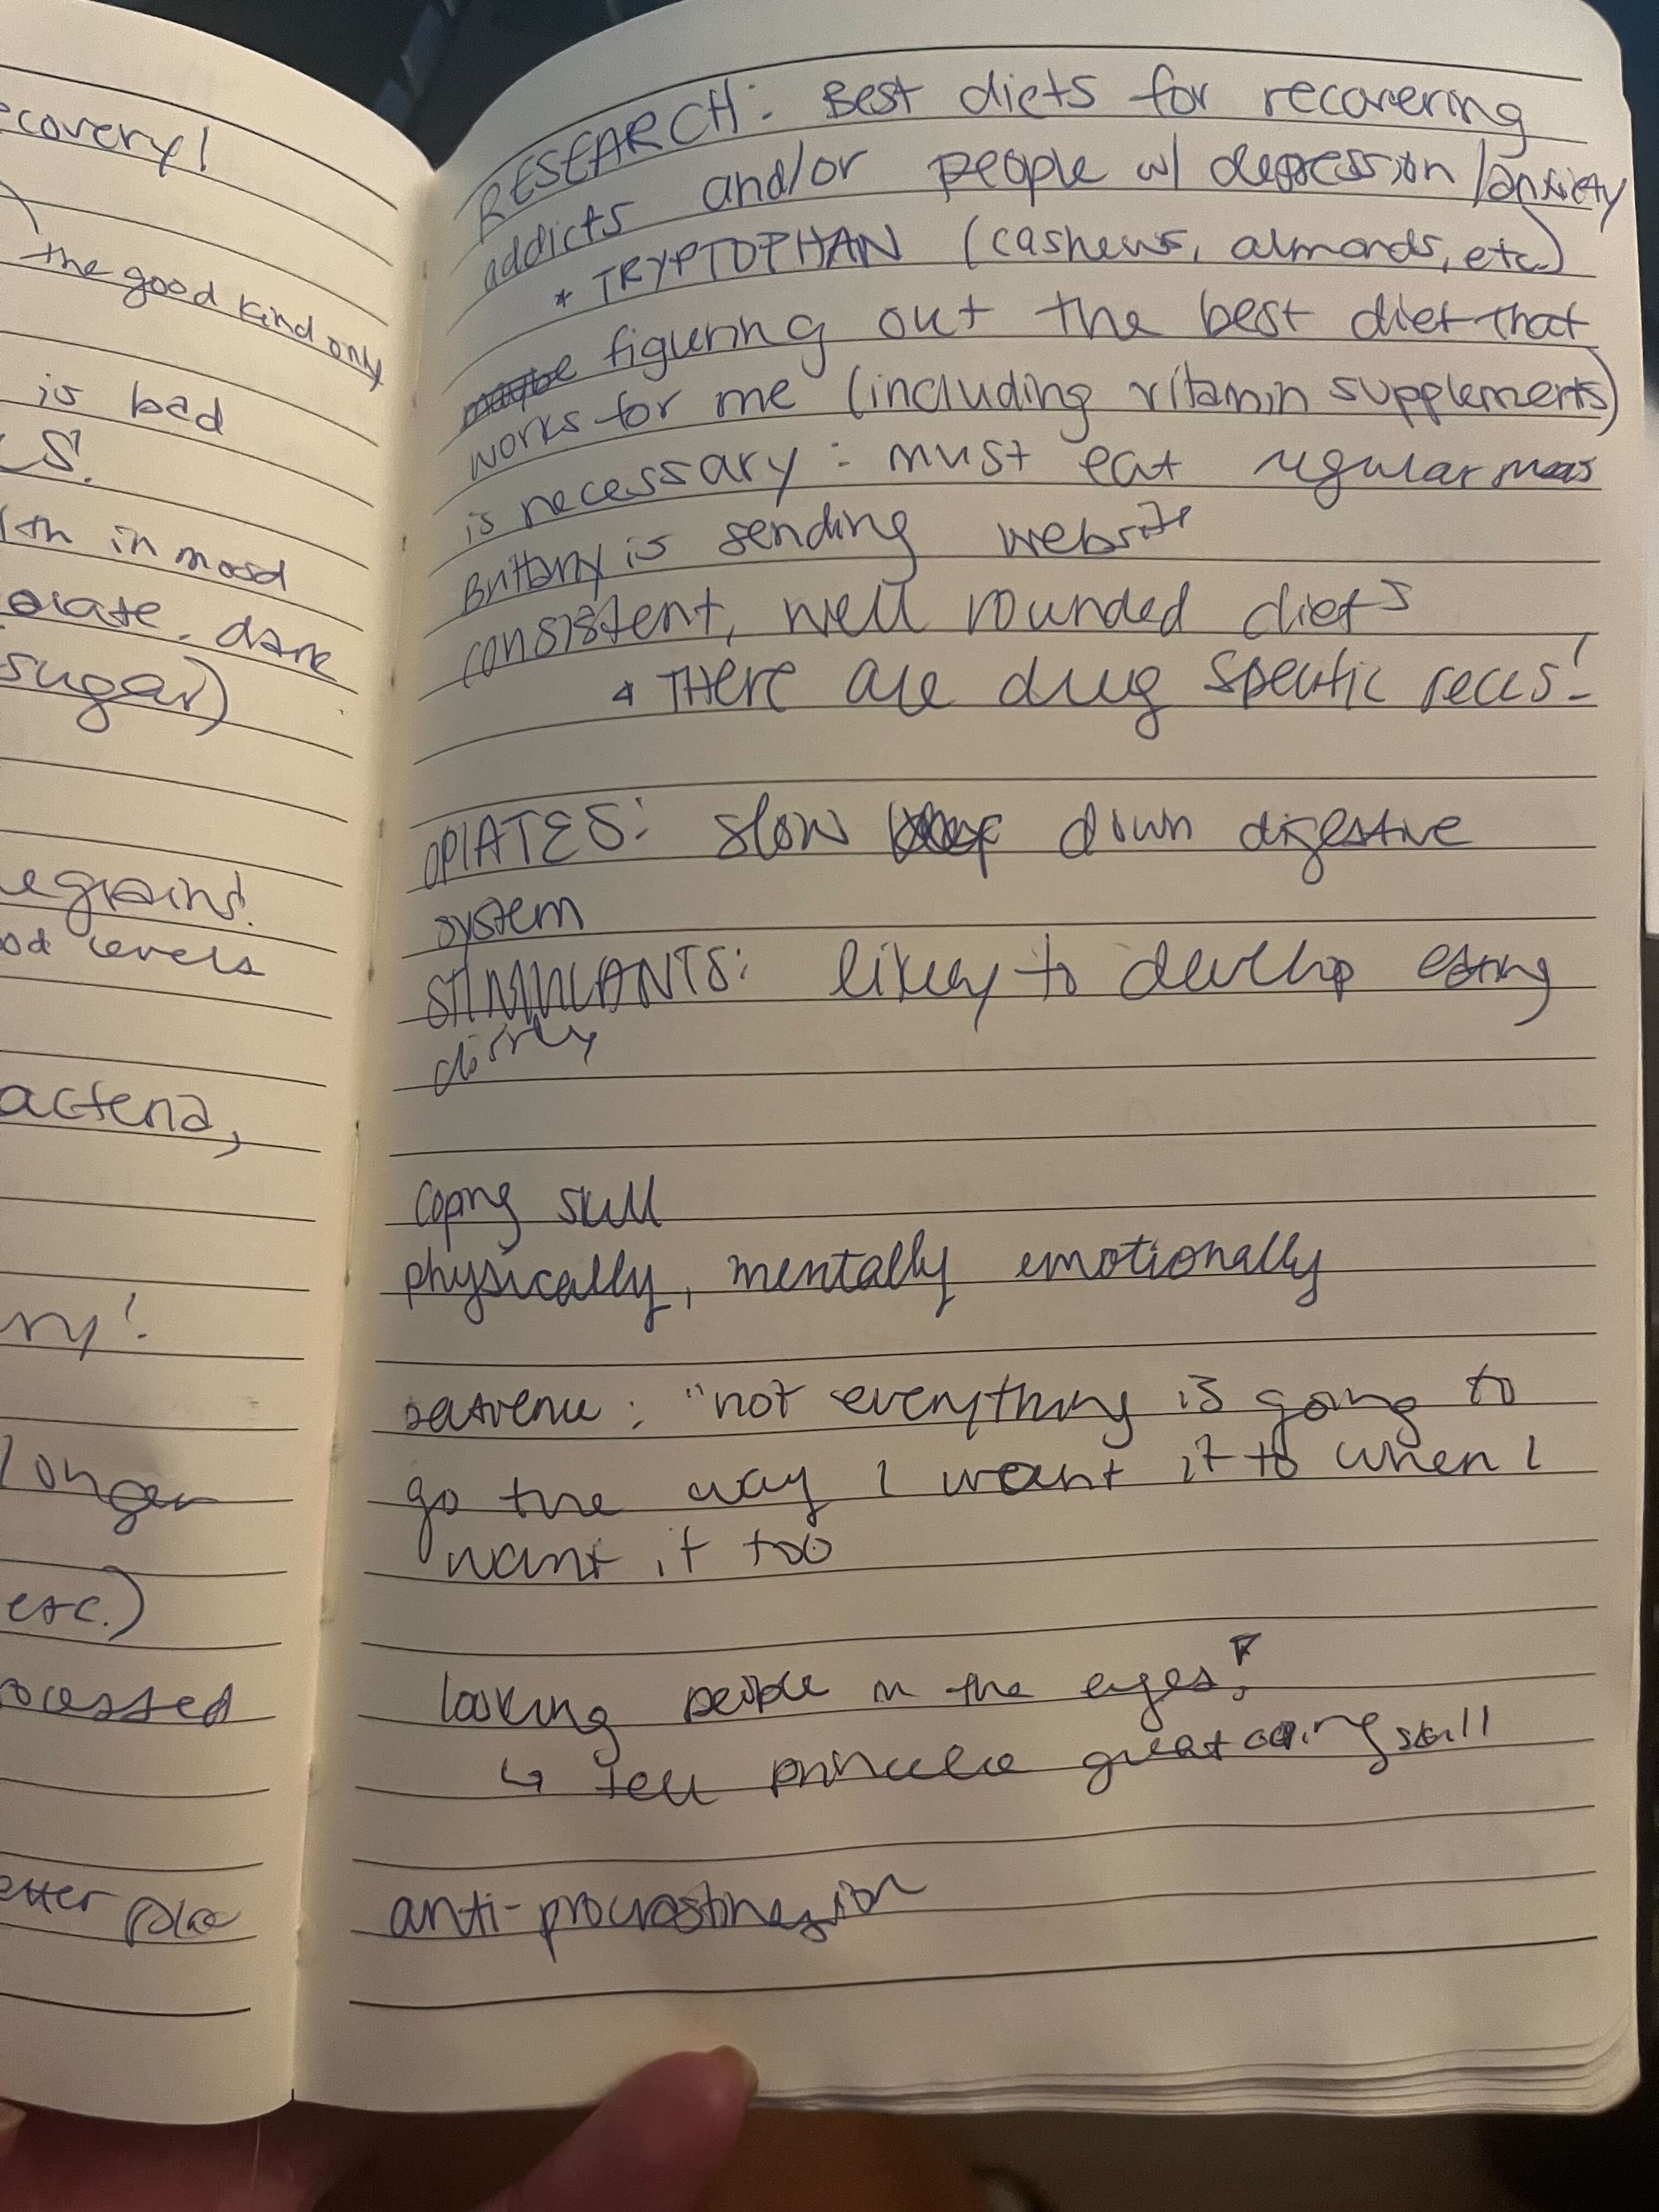 ecovery!
the good kind only
is bad
S.
lth in mood
olate, dark
sugar)
egrains!
od levels
acteria,
ry!
longer
etc.)
ocessed
etter
RESEARCH: Best diets for recovering
addicts and/or people w/ depression/anxiety
* TRYPTOPHAN (cashews, almonds, etc.)
maybe figuring out the best diet that
works for me (including vitamin supplements)
is necessary: must eat regular
Brittany is sending website
consistent, well rounded diets
* THERE are drug specific recs!
OPIATES: slow down digestive
system
STIMULANTS: likely to develop eating
coping skill
physically, mentally emotionally
: "not everything is going to
go the way I want it to when I
want it too
looking people in the eyes
↳ tell great coping skill
anti-procrastination